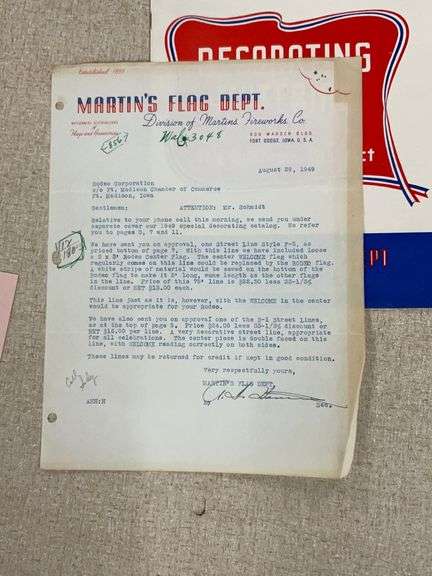 DECORATING
Established 1893
MARTIN'S FLAG DEPT.
Division of Martin's Fireworks Co.
Flags and Decorations
600 WARDEN BLDG.
FORT DODGE, IOWA, U.S.
3048
August 22, 1949
Rodeo Corporation
c/o Ft. Madison Chamber of Commerce
Ft. Madison, Iowa
Gentlemen: ATTENTION: Mr. Schmidt
Relative to your phone call this morning, we send you under
separate cover our 1949 special decorating catalog. We refer
you to pages 5, 7 and 11.
We have sent you on approval, one Street Line Style F-5, as
priced bottom of page 7. With this line we have included loose
a 2 x 3' Rodeo Center flag. The center WELCOME flag which
regularly comes on this line could be replaced by the RODEO flag.
A white stripe of material would be saved on the bottom of the
Rodeo flag to make it 3' long, same length as the other flags
in the line. Price of this 75' line is
discount or NET $15.00 each.
This line just as it is, however, with the WELCOME in the center
would be appropriate for your Rodeo.
We have also sent you on approval one of the S-1 Street Lines,
as at the top of page 5. Price $24.00 less 33-1/3% discount or
NET $16.00 per line. A very decorative street line, appropriate
for all celebrations. The center piece is double faced on this
line, with WELCOME reading correctly on both sides.
These lines may be returned for credit if kept in good condition.
Very respectfully yours,
MARTIN'S FLAG DEPT.
By Sec.
AHN:H